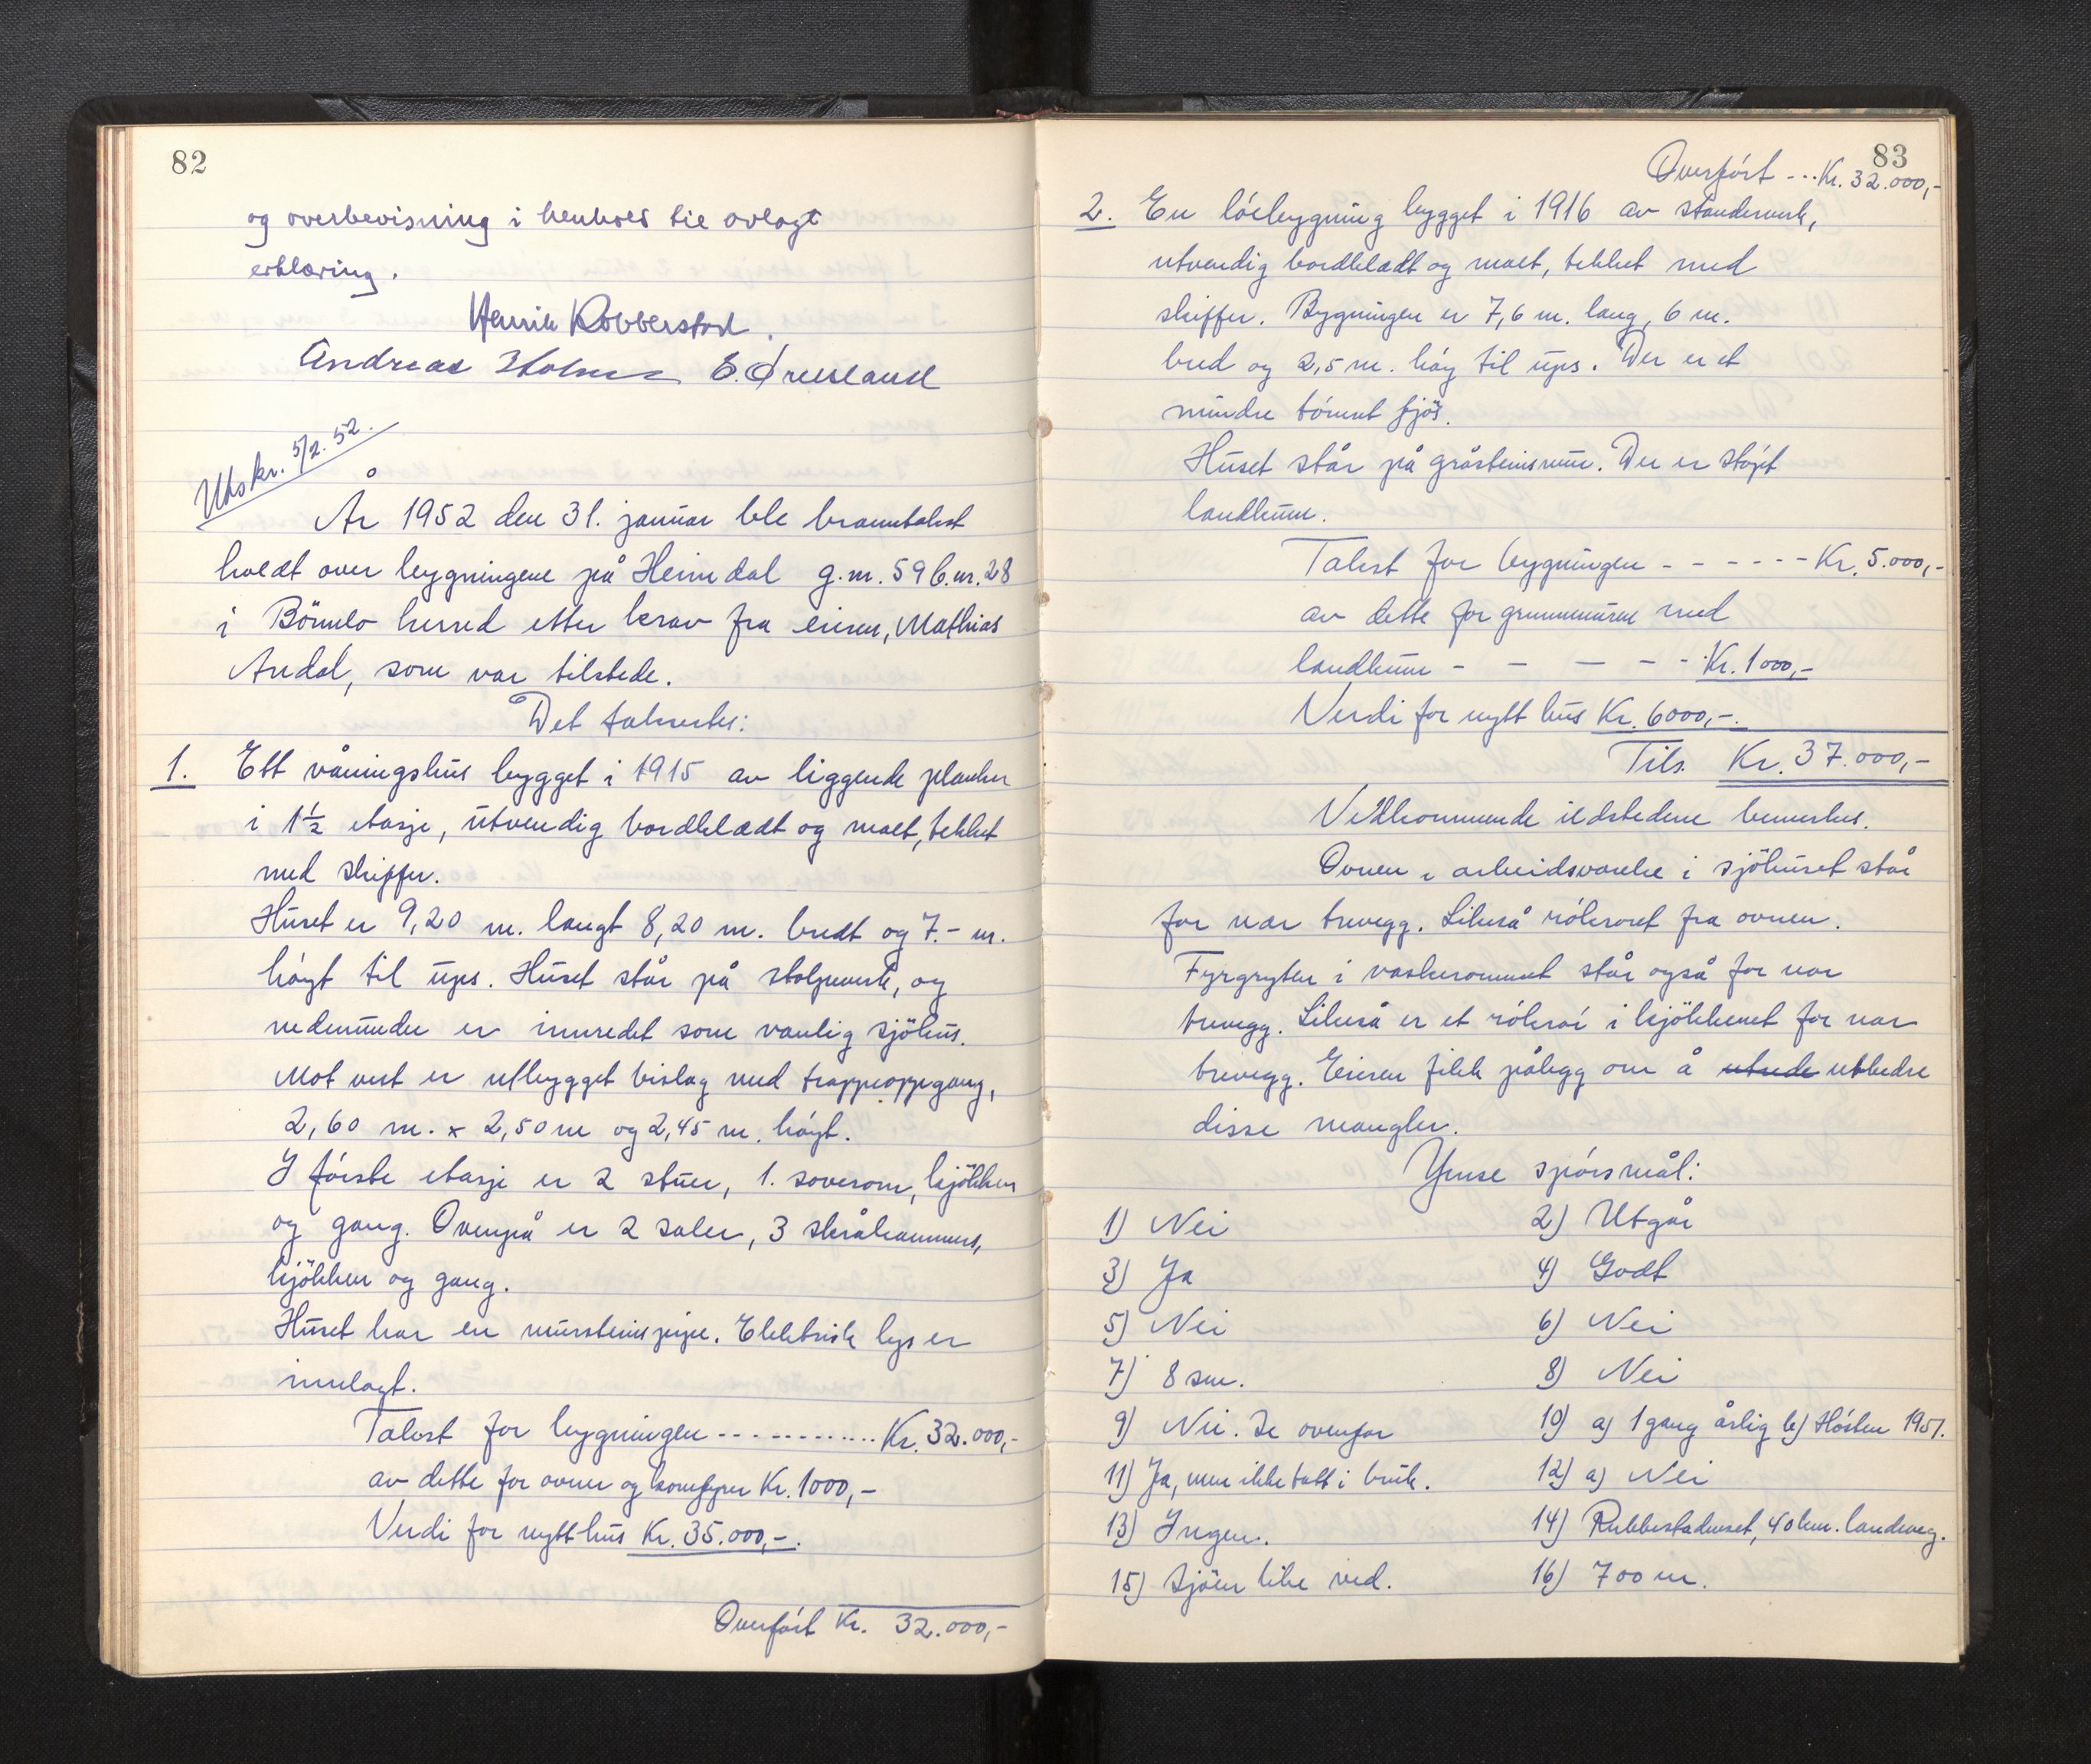 82
og overbevisning i henhold til avlagt
erklæring.
Henrik Robberstad.
Andreas Holme E. Ørresland
Utskr. 5/2. 52.
År 1952 den 31. januar ble branntakst
holdt over bygningene på Heimdal g.nr. 59 b.nr. 28
i Bömlo herred etter krav fra eieren, Mathias
Andal, som var tilstede.
Det taksertes:
1. Ett våningshus bygget i 1915 av liggende planker
i 1½ etasje, utvendig bordkledt og malt, tekket
med skiffer.
Huset er 9,20 m. langt 8,20 m. bredt og 7.- m.
höyt til ups. Huset står på stolpeverk, og
nedenunder er innredet som vanlig sjöhus.
Mot vest er utbygget bislag med trappeoppgang,
2,60 m. x 2,50 m og 2,45 m. höyt.
I förste etasje er 2 stuer, 1. soverom, kjökken
og gang. Ovenpå er 2 saler, 3 skråkammers,
kjökken og gang.
Huset har en murstenspipe. Elektrisk lys er
innlagt.
Takst for bygningen ------------ Kr. 32.000,-
av dette for ovner og komfyrer Kr. 1000,-
Verdi for nytt hus Kr. 35.000,-.
Overfört Kr. 32.000,-
83
Overfört --- Kr. 32.000,-
2. En löebygning bygget i 1916 av standerverk,
utvendig bordkledt og malt, tekket med
skiffer. Bygningen er 7,6 m. lang, 6 m.
bred og 2,5 m. höy til ups. Der er et
mindre tömret fjös.
Huset står på gråsteinsmur. Der er stöpt
landkum.
Takst for bygningen - - - - - - Kr. 5.000,-
av dette for grunnmuren med
landkum - - - - - Kr. 1000,-
Verdi for nytt hus Kr. 6000,-.
Tils. Kr. 37.000,-
Vedkommende ildstedene bemerkes.
Ovnen i arbeidsværelse i sjöhuset står
for nær trevegg. Likeså rökröret fra ovnen.
Fyrgryten i vaskerommet står også for nær
trevegg. Likeså er et rökrör i kjökkenet for nær
trevegg. Eieren fikk pålegg om å utrede utbedre
disse mangler.
Ymse spörsmål:
1) Nei 2) Utgår
3) Ja 4) Godt
5) Nei 6) Nei
7) 8 sm. 8) Nei
9) Nei. Se ovenfor 10) a) 1 gang årlig b) Hösten 1951.
11) Ja, men ikke tatt i bruk. 12) a) Nei
13) Ingen. 14) Rubbestadneset, 40 km. landeveg.
15) Sjöen like ved. 16) 700 m.